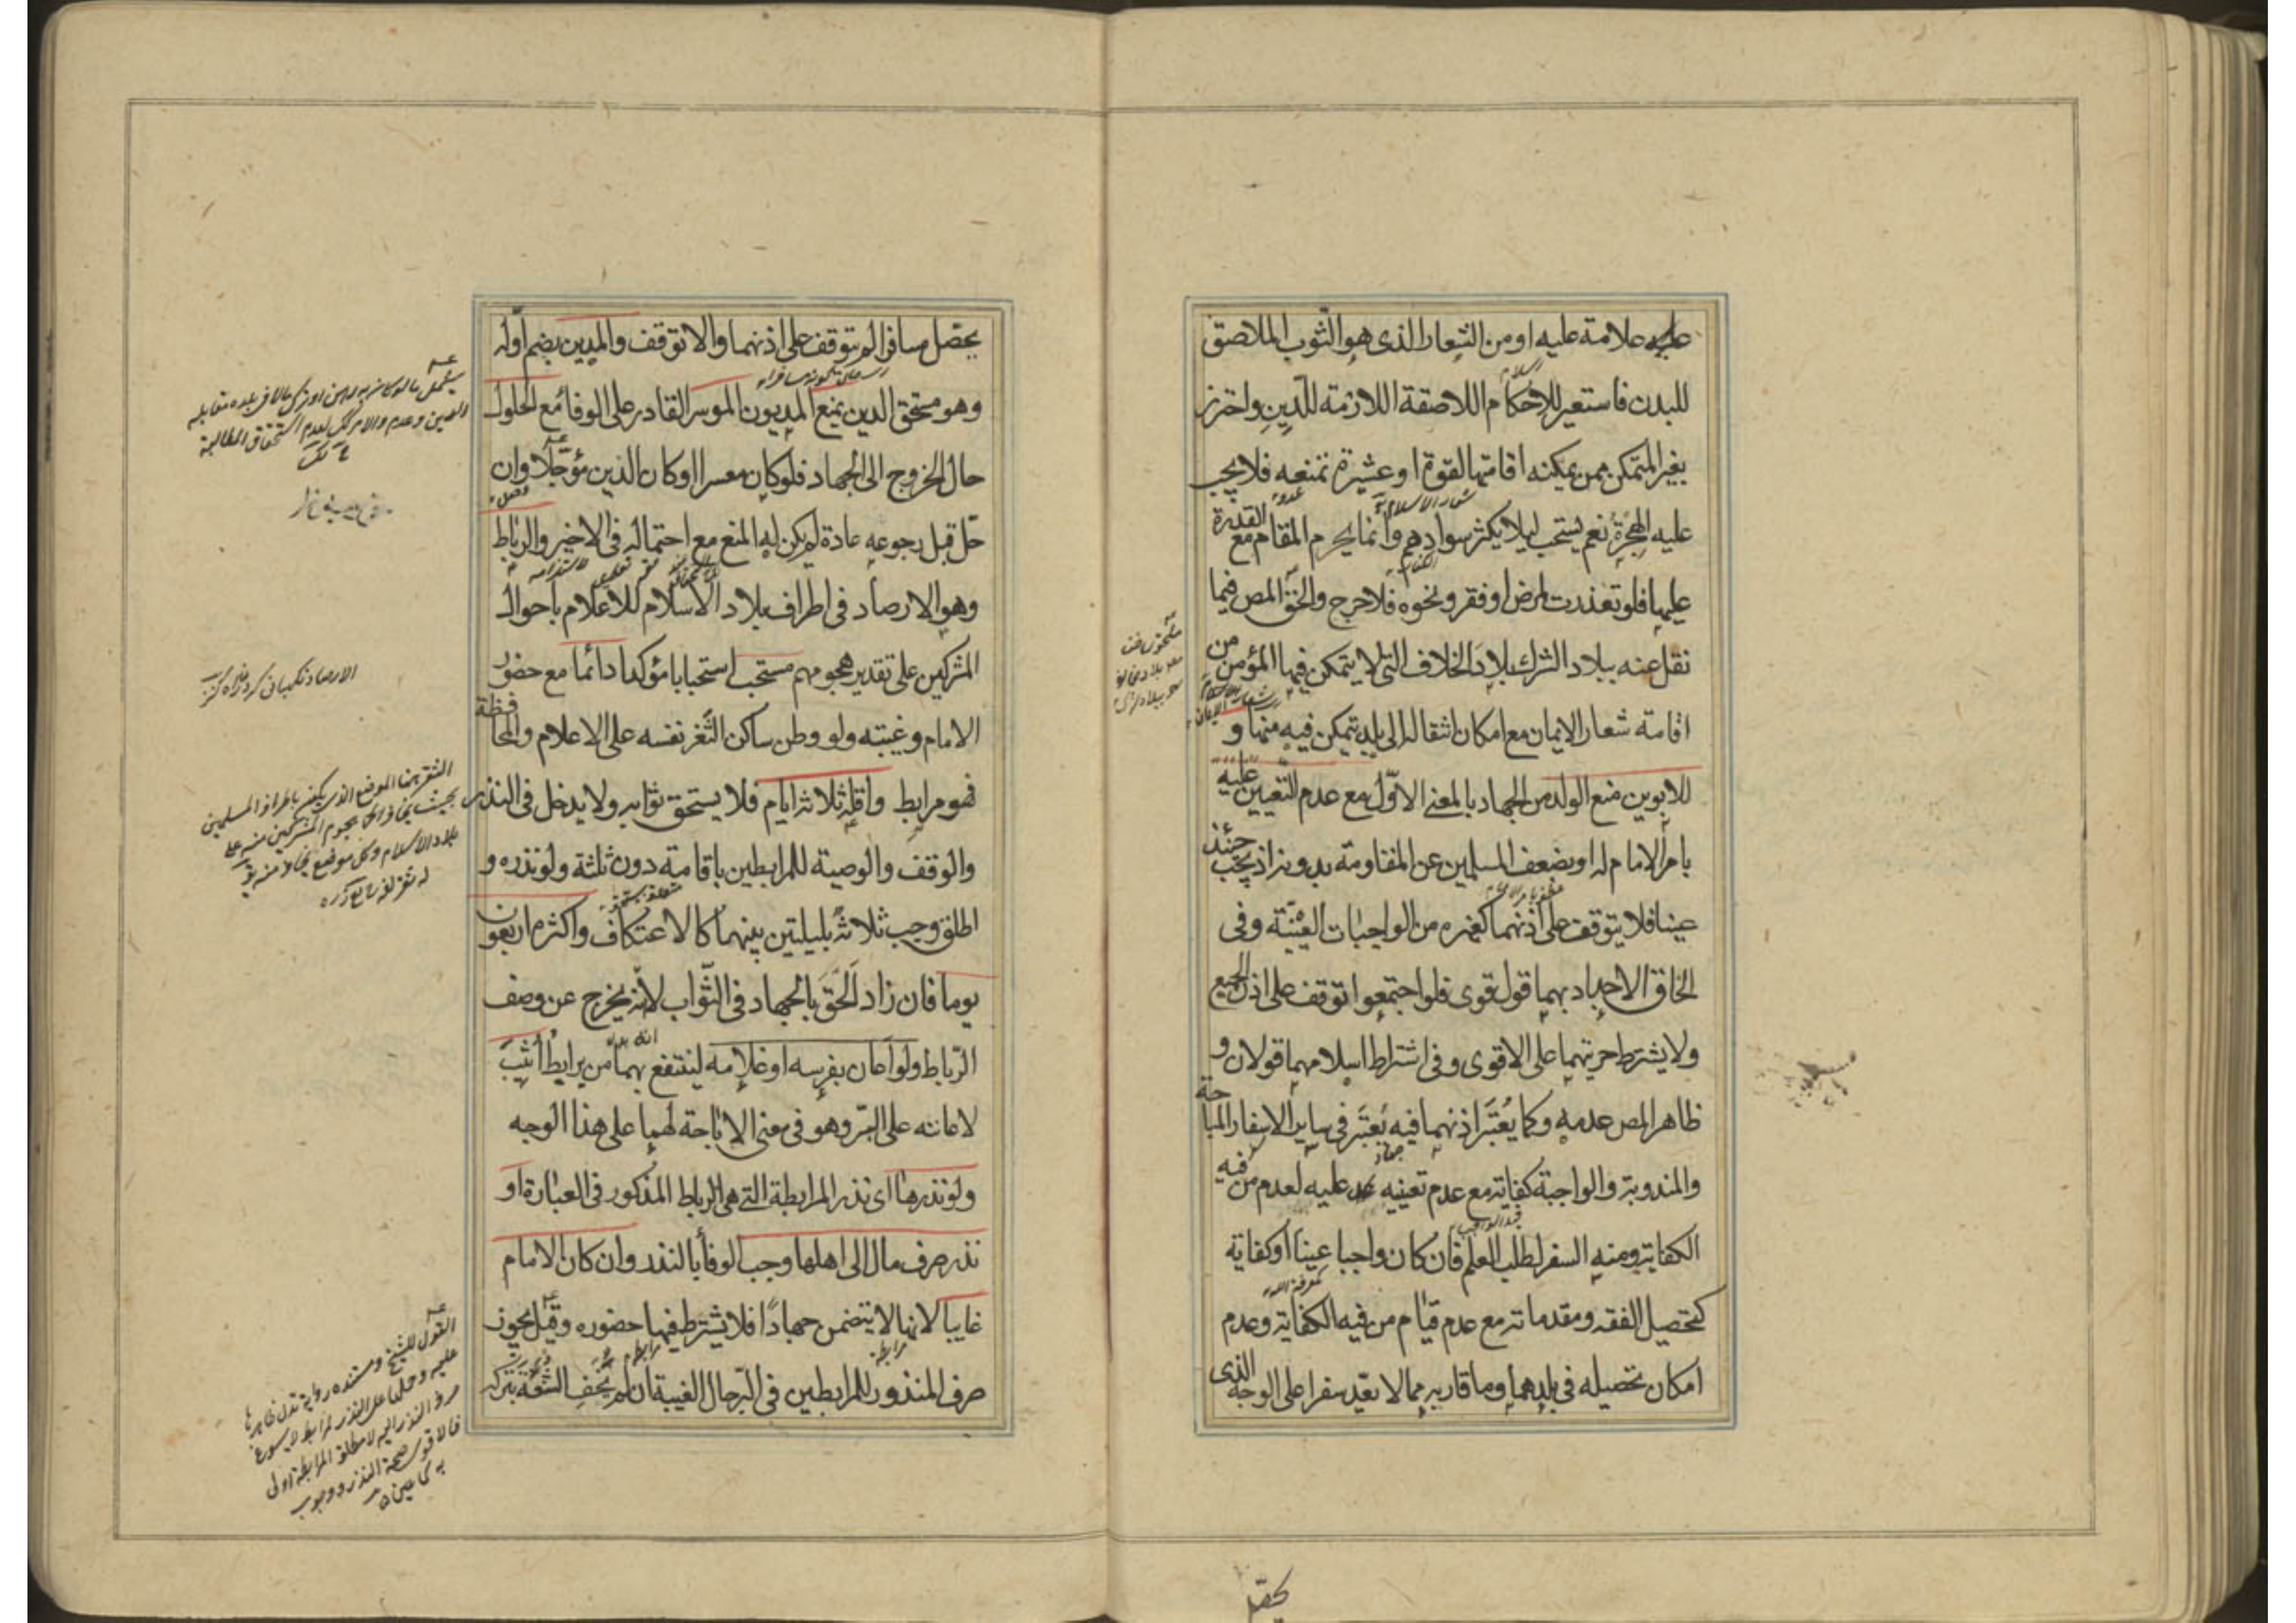 عليه علامة عليه او من الشعار الذى هو الثوب الملاصق
للبدن فاستعير للاحكام اللاصقة اللازمة للدين واحترز
بغير المتمكن ممن يمكنه اقامتها لقوة او عشيرة تمنعه فلا يجب
عليه الهجرة نعم يستحب ليلا يكثر سوادهم وانما يحرم المقام مع القدرة
عليها فلو تعذرت لمرض او فقر ونحوه فلا حرج والحق المص فيما
نقل عنه ببلاد الشرك بلاد الخلاف التى لا يتمكن فيها المؤمن من
اقامة شعار الايمان مع امكان انتقاله الى بلد يتمكن فيه منها و
للابوين منع الولد من الجهاد بالمعنى الاول مع عدم التعيين عليه
بامر الامام له او بضعف المسلمين عن المقاومة بدونه اذ يجب حينئذ
عينا فلا يتوقف على اذنهما كغيره من الواجبات العينية وفى
الحاق الاجداد بهما قول قوى فلو اجتمعوا توقف على اذن الجميع
ولا يشترط حريتهما على الاقوى وفى اشتراط اسلامهما قولان و
ظاهر المص عدمه وكما يعتبر اذنهما فيه يعتبر فى ساير الاسفار المباحة
والمندوبة والواجبة كفاية مع عدم تعينه عليه لعدم من فيه
الكفاية ومنه السفر لطلب العلم فان كان واجبا عينا او كفاية
كتحصيل الفقه ومقدماته مع عدم قيام من فيه الكفاية وعدم
امكان تحصيله فى بلدهما وما قاربه مما لا يعد سفرا على الوجه الذى
يحصل
يحصل مسافرا لم يتوقف على اذنهما والا توقف والمدين بضم اوله
وهو مستحق الدين يمنع المديون الموسر القادر على الوفاء مع الحلول
حال الخروج الى الجهاد فلو كان معسرا او كان الدين مؤجلا وان
حل قبل رجوعه عادة لم يكن له المنع مع احتماله فى الاخير والرباط
وهو الارصاد فى اطراف بلاد الاسلام للاعلام باحوال
المشركين على تقدير هجومهم مستحب استحبابا مؤكدا دائما مع حضور
الامام وغيبته ولو وطن ساكن الثغر نفسه على الاعلام والمحافظة
فهو مرابط واقله ثلاثة ايام فلا يستحق ثوابه ولا يدخل فى النذر
والوقف والوصية للمرابطين باقامة دون ثلثة ولو نذره و
اطلق وجب ثلاثة بليلتين بينهما كالاعتكاف واكثره اربعون
يوما فان زاد الحق بالجهاد فى الثواب لا انه يخرج عن وصف
الرباط ولو اعان بفرسه او غلامه لينتفع بهما من يرابط اثيب
لاعانته على البر وهو فى معنى الاباحة لهما على هذا الوجه
ولو نذرها اى نذر المرابطة التى هى الرباط المذكور فى العبارة او
نذر صرف مال الى اهلها وجب الوفاء بالنذر وان كان الامام
غايبا لانها لا يتضمن جهادا فلا يشترط فيها حضوره وقيل يجوز
صرف المنذور للمرابطين فى البر حال الغيبة ان لم يخف الشنعة بتركه
الارصاد نكهبانى كردن راه كنز
الثغر هنا الموضع الذى يكون باطراف المسلمين
بحيث يخاف هجوم المشركين منه على
بلاد الاسلام وكل موضع يخاف منه يق
له ثغر لغة
القول للشيخ ومستنده رواية تدل ظاهرها
عليه وحملها على النذر لمرابط لا يسوغ
صرف النذر اليه لا مطلق المرابطة اولى
فالاقوى صحة النذر ووجوب